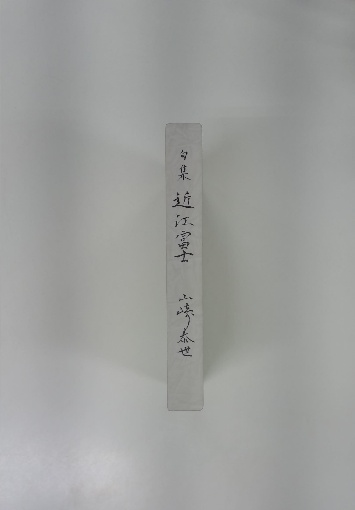 句集 近江富士 山崎泰世